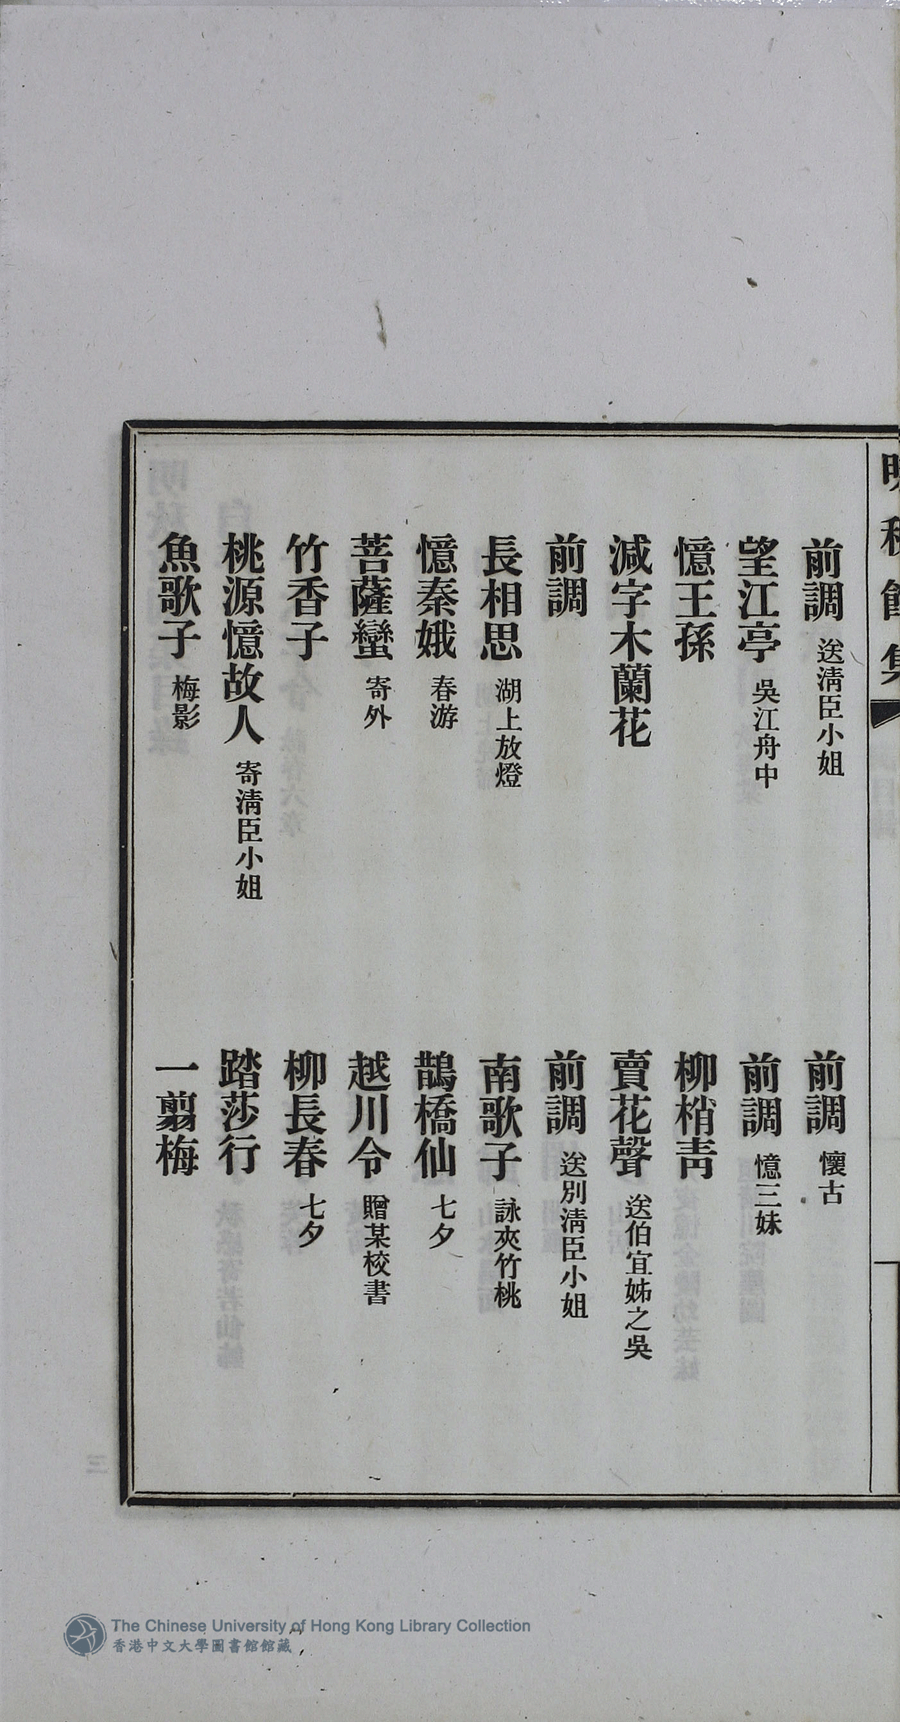 明秋館集
前調 送淸臣小姐
前調 懷古
望江亭 吳江舟中
前調 憶三妹
憶王孫
柳梢靑
減字木蘭花
賣花聲 送伯宜姊之吳
前調
前調 送別淸臣小姐
長相思 湖上放燈
南歌子 詠夾竹桃
憶秦娥 春游
鵲橋仙 七夕
菩薩蠻 寄外
越川令 贈某校書
竹香子
柳長春 七夕
桃源憶故人 寄淸臣小姐
踏莎行
魚歌子 梅影
一翦梅
The Chinese University of Hong Kong Library Collection
香港中文大學圖書館館藏